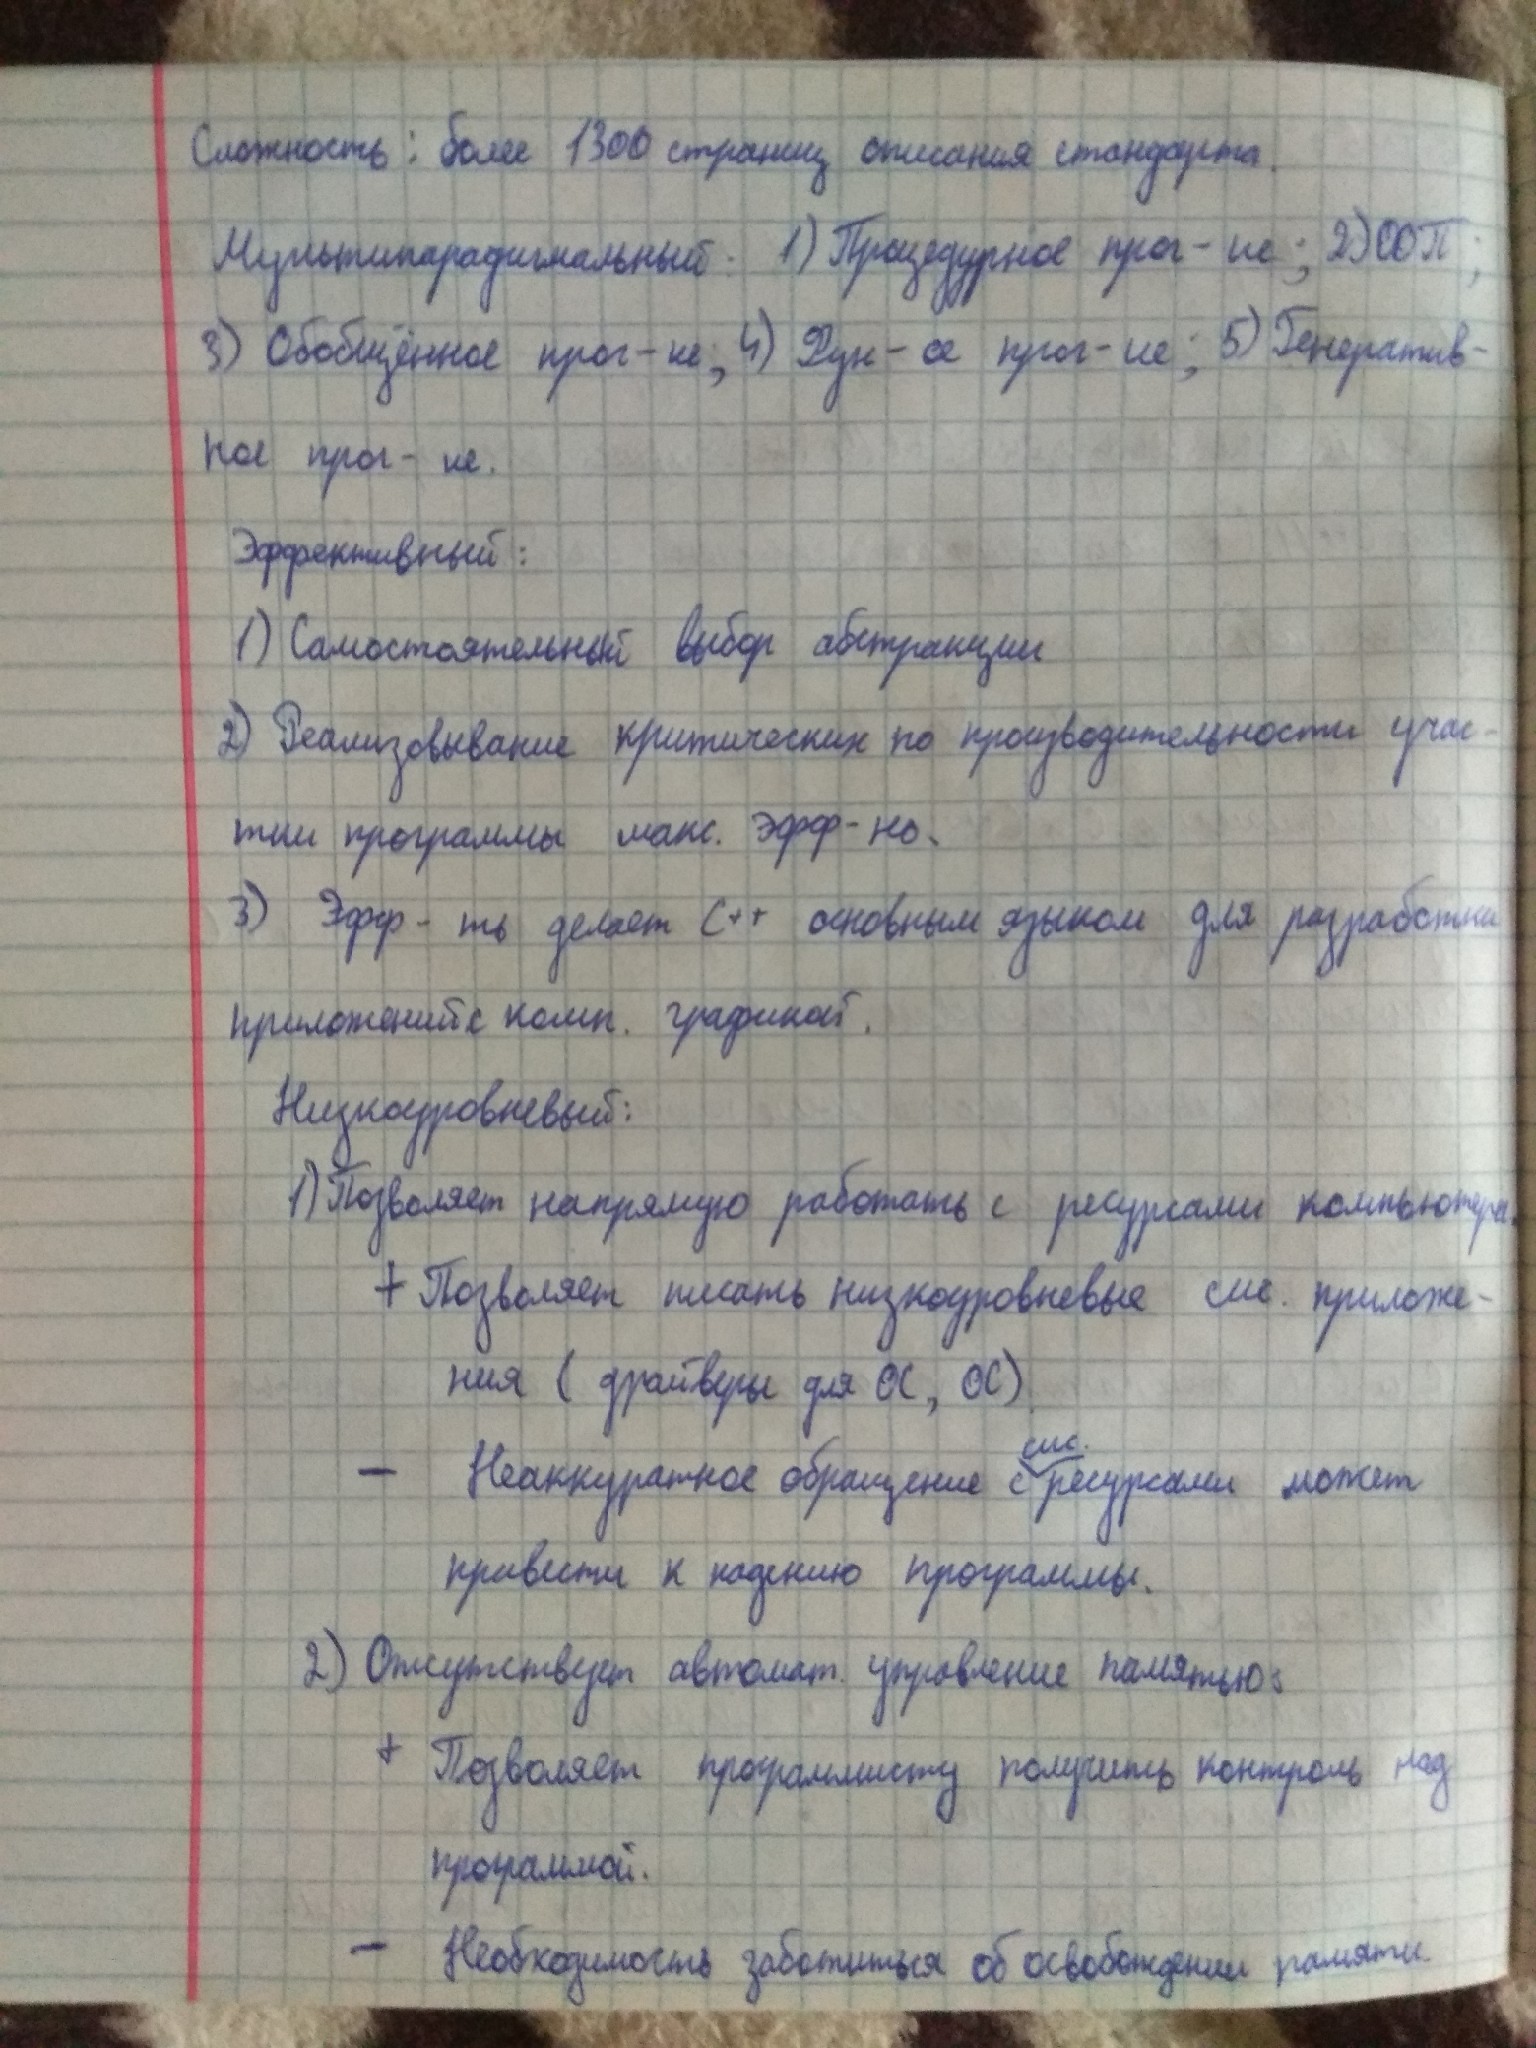 Сложность: более 1300 страниц описания стандарта.
Мультипарадигмальный: 1) Процедурное прог-ие; 2) ООП;
3) Обобщённое прог-ие; 4) Фун-ое прог-ие; 5) Генератив-
ное прог-ие.
Эффективный:
1) Самостоятельный выбор абстракции
2) Реализовывание критических по производительности учас-
тки программы макс. эфф-но.
3) Эфф-ть делает C++ основным языком для разработки
приложений с комп. графикой.
Низкоуровневый:
1) Позволяет напрямую работать с ресурсами компьютера.
+ Позволяет писать низкоуровневые сис. приложе-
ния (драйверы для ОС, ОС)
сис.
- Неаккуратное обращение с ресурсами может
привести к падению программы.
2) Отсутствует автомат. управление памятью:
+ Позволяет программисту получить контроль над
программой.
- Необходимость заботиться об освобождении памяти.